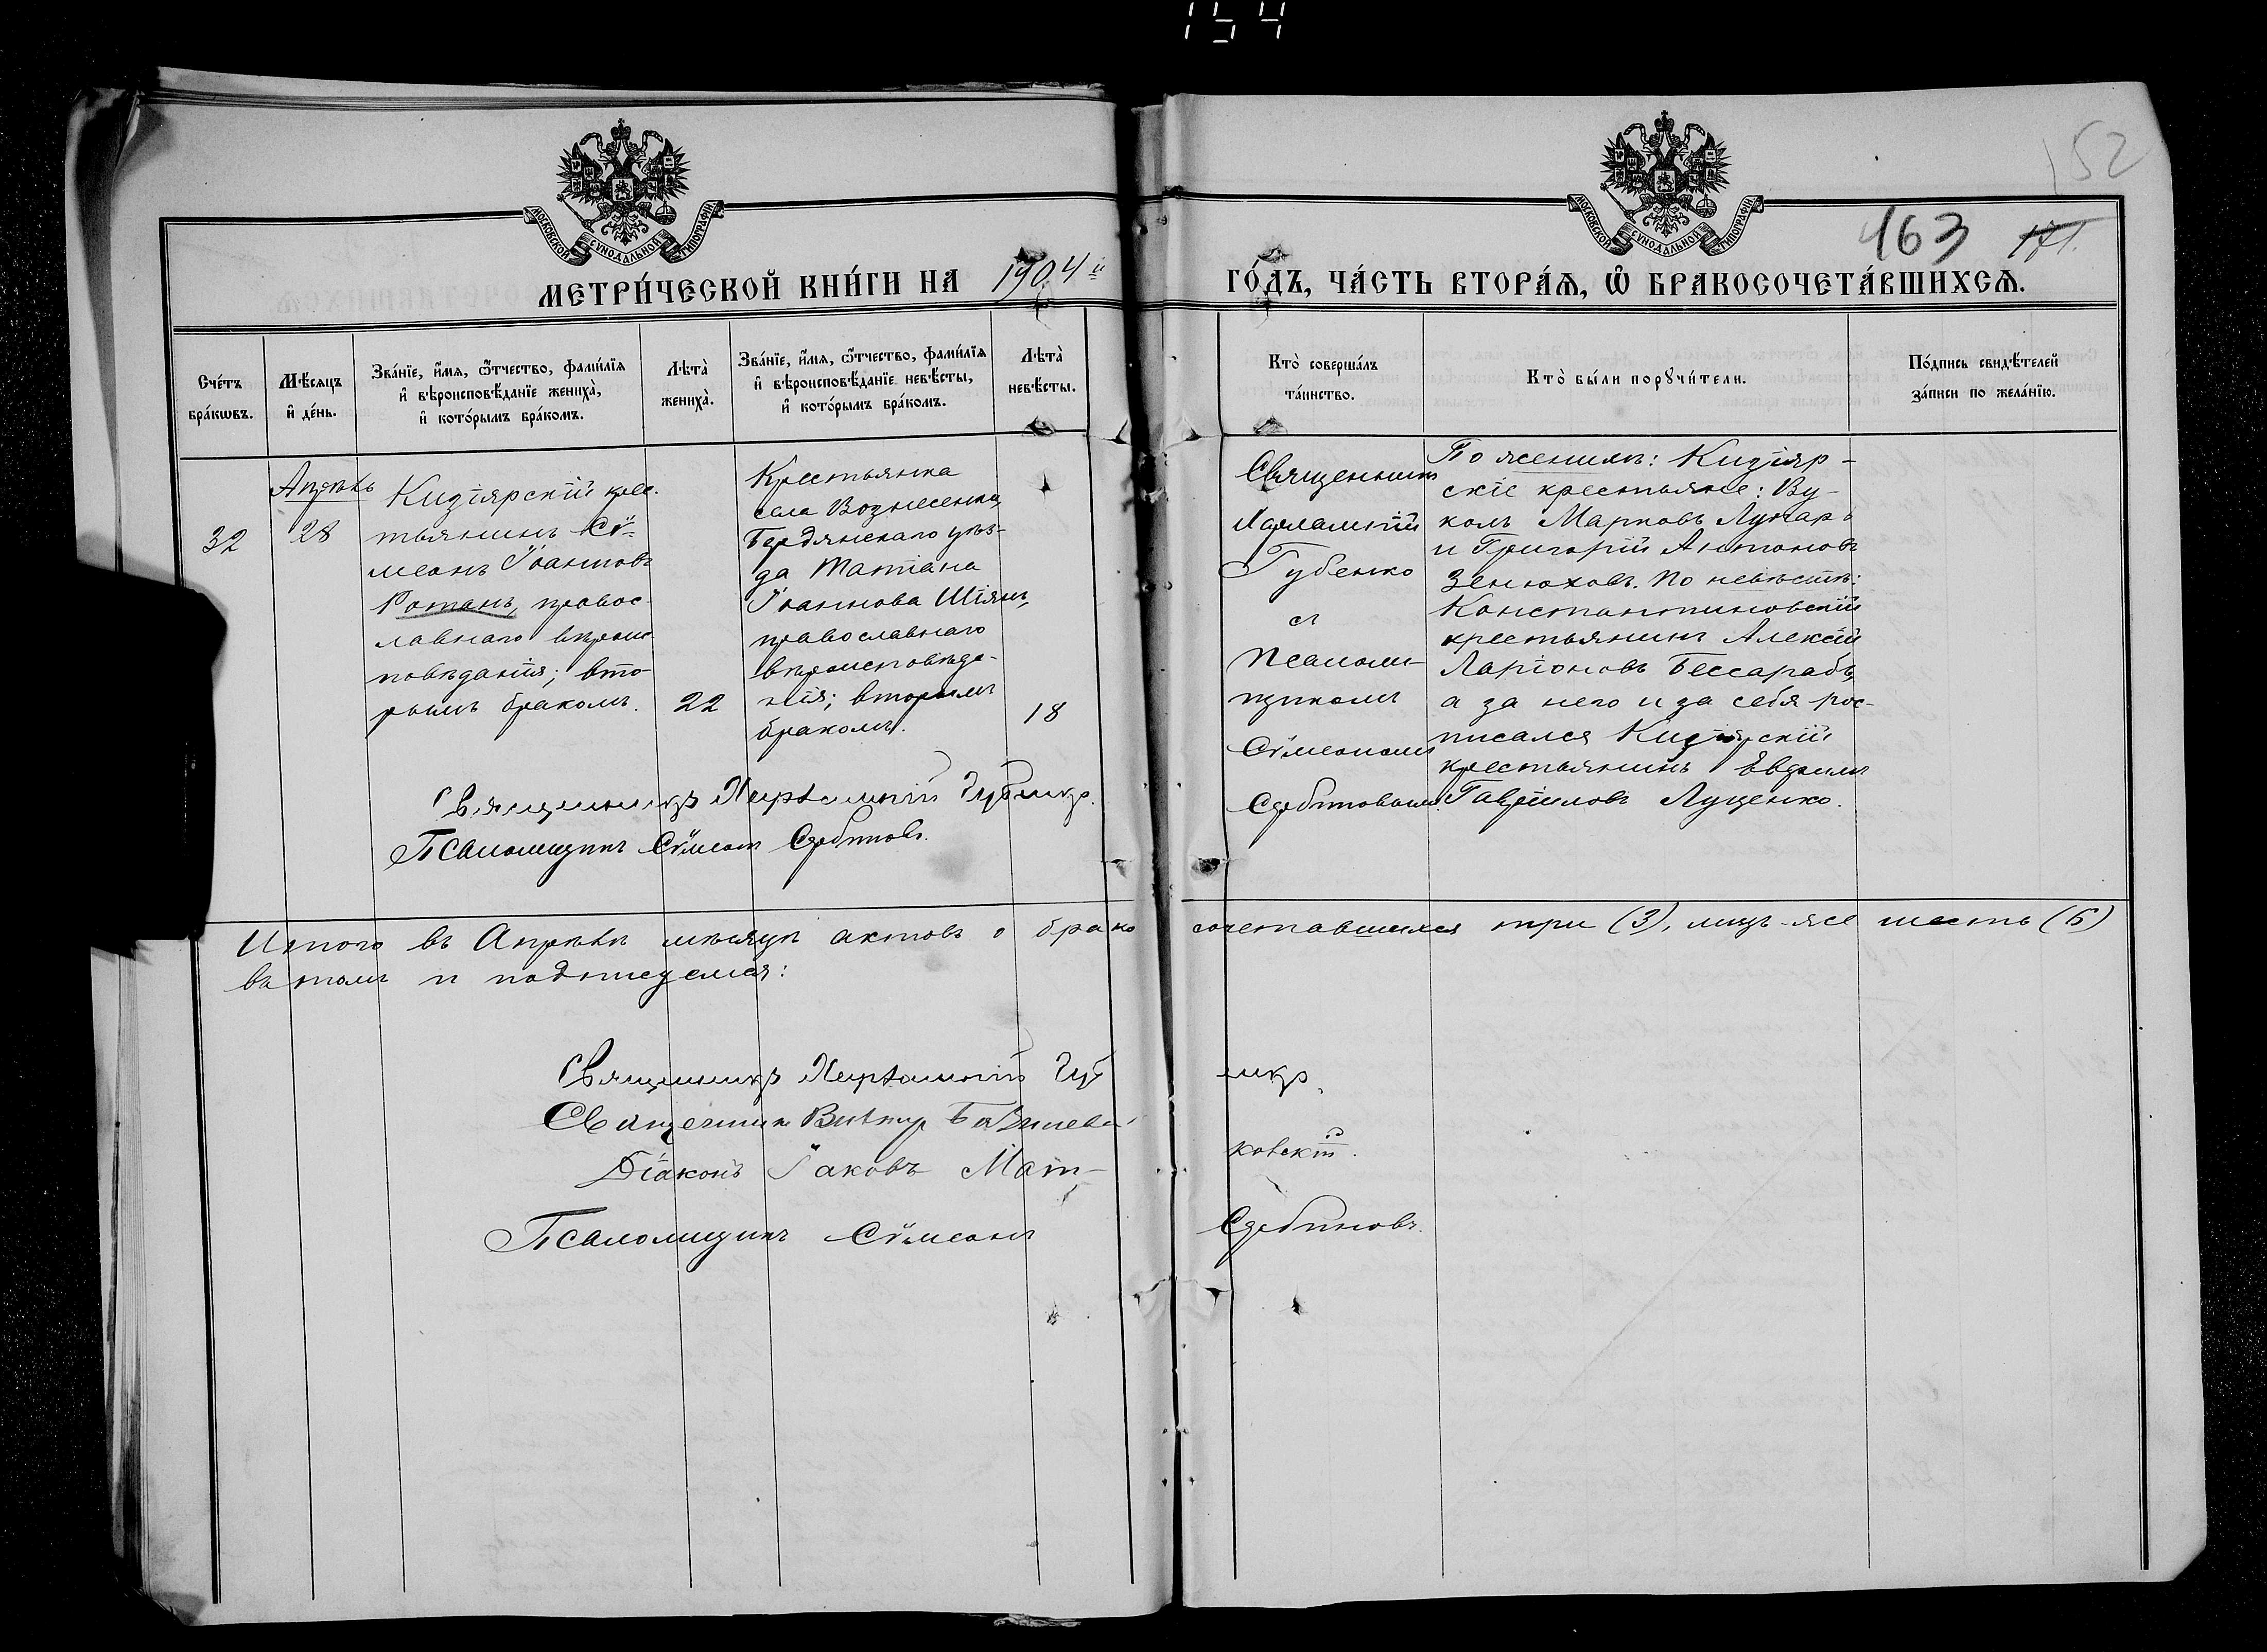 154
152
163 171.
МОСКОВСКОЙ СѴНОДАЛЬНОЙ ТИПОГРАФІИ
МОСКОВСКОЙ СѴНОДАЛЬНОЙ ТИПОГРАФІИ
МЕТРИ́ЧЕСКОЙ КНИ́ГИ НА 1904 й ГО́ДЪ, ЧА́СТЬ ВТОРА́Ѧ, Ѽ БРАКОСОЧЕТА́ВШИХСѦ.
Сче́тъ
бра́кωвъ.
Мѣ́сѧцъ
и҆ де́нь.
Зва́нїе, и҆́мя, ѻ҆́тчество, фами́лїя
и҆ вѣроисповѣ́данїе жениха̀,
и҆ кото́рымъ бра́комъ.
Лѣта̀
жениха̀.
Зва́нїе, и҆́мя, ѻ҆́тчество, фами́лїя
и҆ вѣроисповѣ́данїе невѣ́сты,
и҆ кото́рымъ бра́комъ.
Лѣта̀
невѣ́сты.
Кто̀ соверша́лъ
та́инство.
Кто̀ бы́ли порꙋчи́тели.
По́дпись свидѣ́телей
за́писи по жела́нїю.
32
Апрѣль
28
Кизіярскій крес-
тьянинъ Сѵ-
меонъ Іоанновъ
Ротань, правос-
лавнаго вѣроис-
повѣданія; вто-
рымъ бракомъ.
22
Крестьянка
села Вознесенки,
Бердянскаго уѣз-
да Татіана
Іоаннова Шіянъ,
православнаго
вѣроисповѣда-
нія; вторымъ
бракомъ.
18
Священникъ
Харлампій
Губенко
съ
псалом-
щикомъ
Сѵмеономъ
По женихѣ: Кизіяр-
скіе крестьяне: Ву-
колъ Марковъ Лутарь
и Григорій Антоновъ
Зенюховъ. По невѣстѣ:
Константиновскій
крестьянинъ Алексій
Ларіоновъ Бессарабъ,
а за него и за себя рос-
писался Кизіярскій
крестьянинъ Евфимъ
Гавріиловъ Луценко.
Священникъ Харлампій Губенко.
Псаломщикъ Сѵмеонъ
Итого въ Апрѣлѣ мѣсяцѣ актовъ о бракосочетавшихся три (3), лицъ-же шесть (6)
въ томъ и подписуемся:
Священникъ Харлампій Губенко.
Священникъ Викторъ
Діаконъ Іаковъ Мат-ковскій.
Псаломщикъ Сѵмеонъ